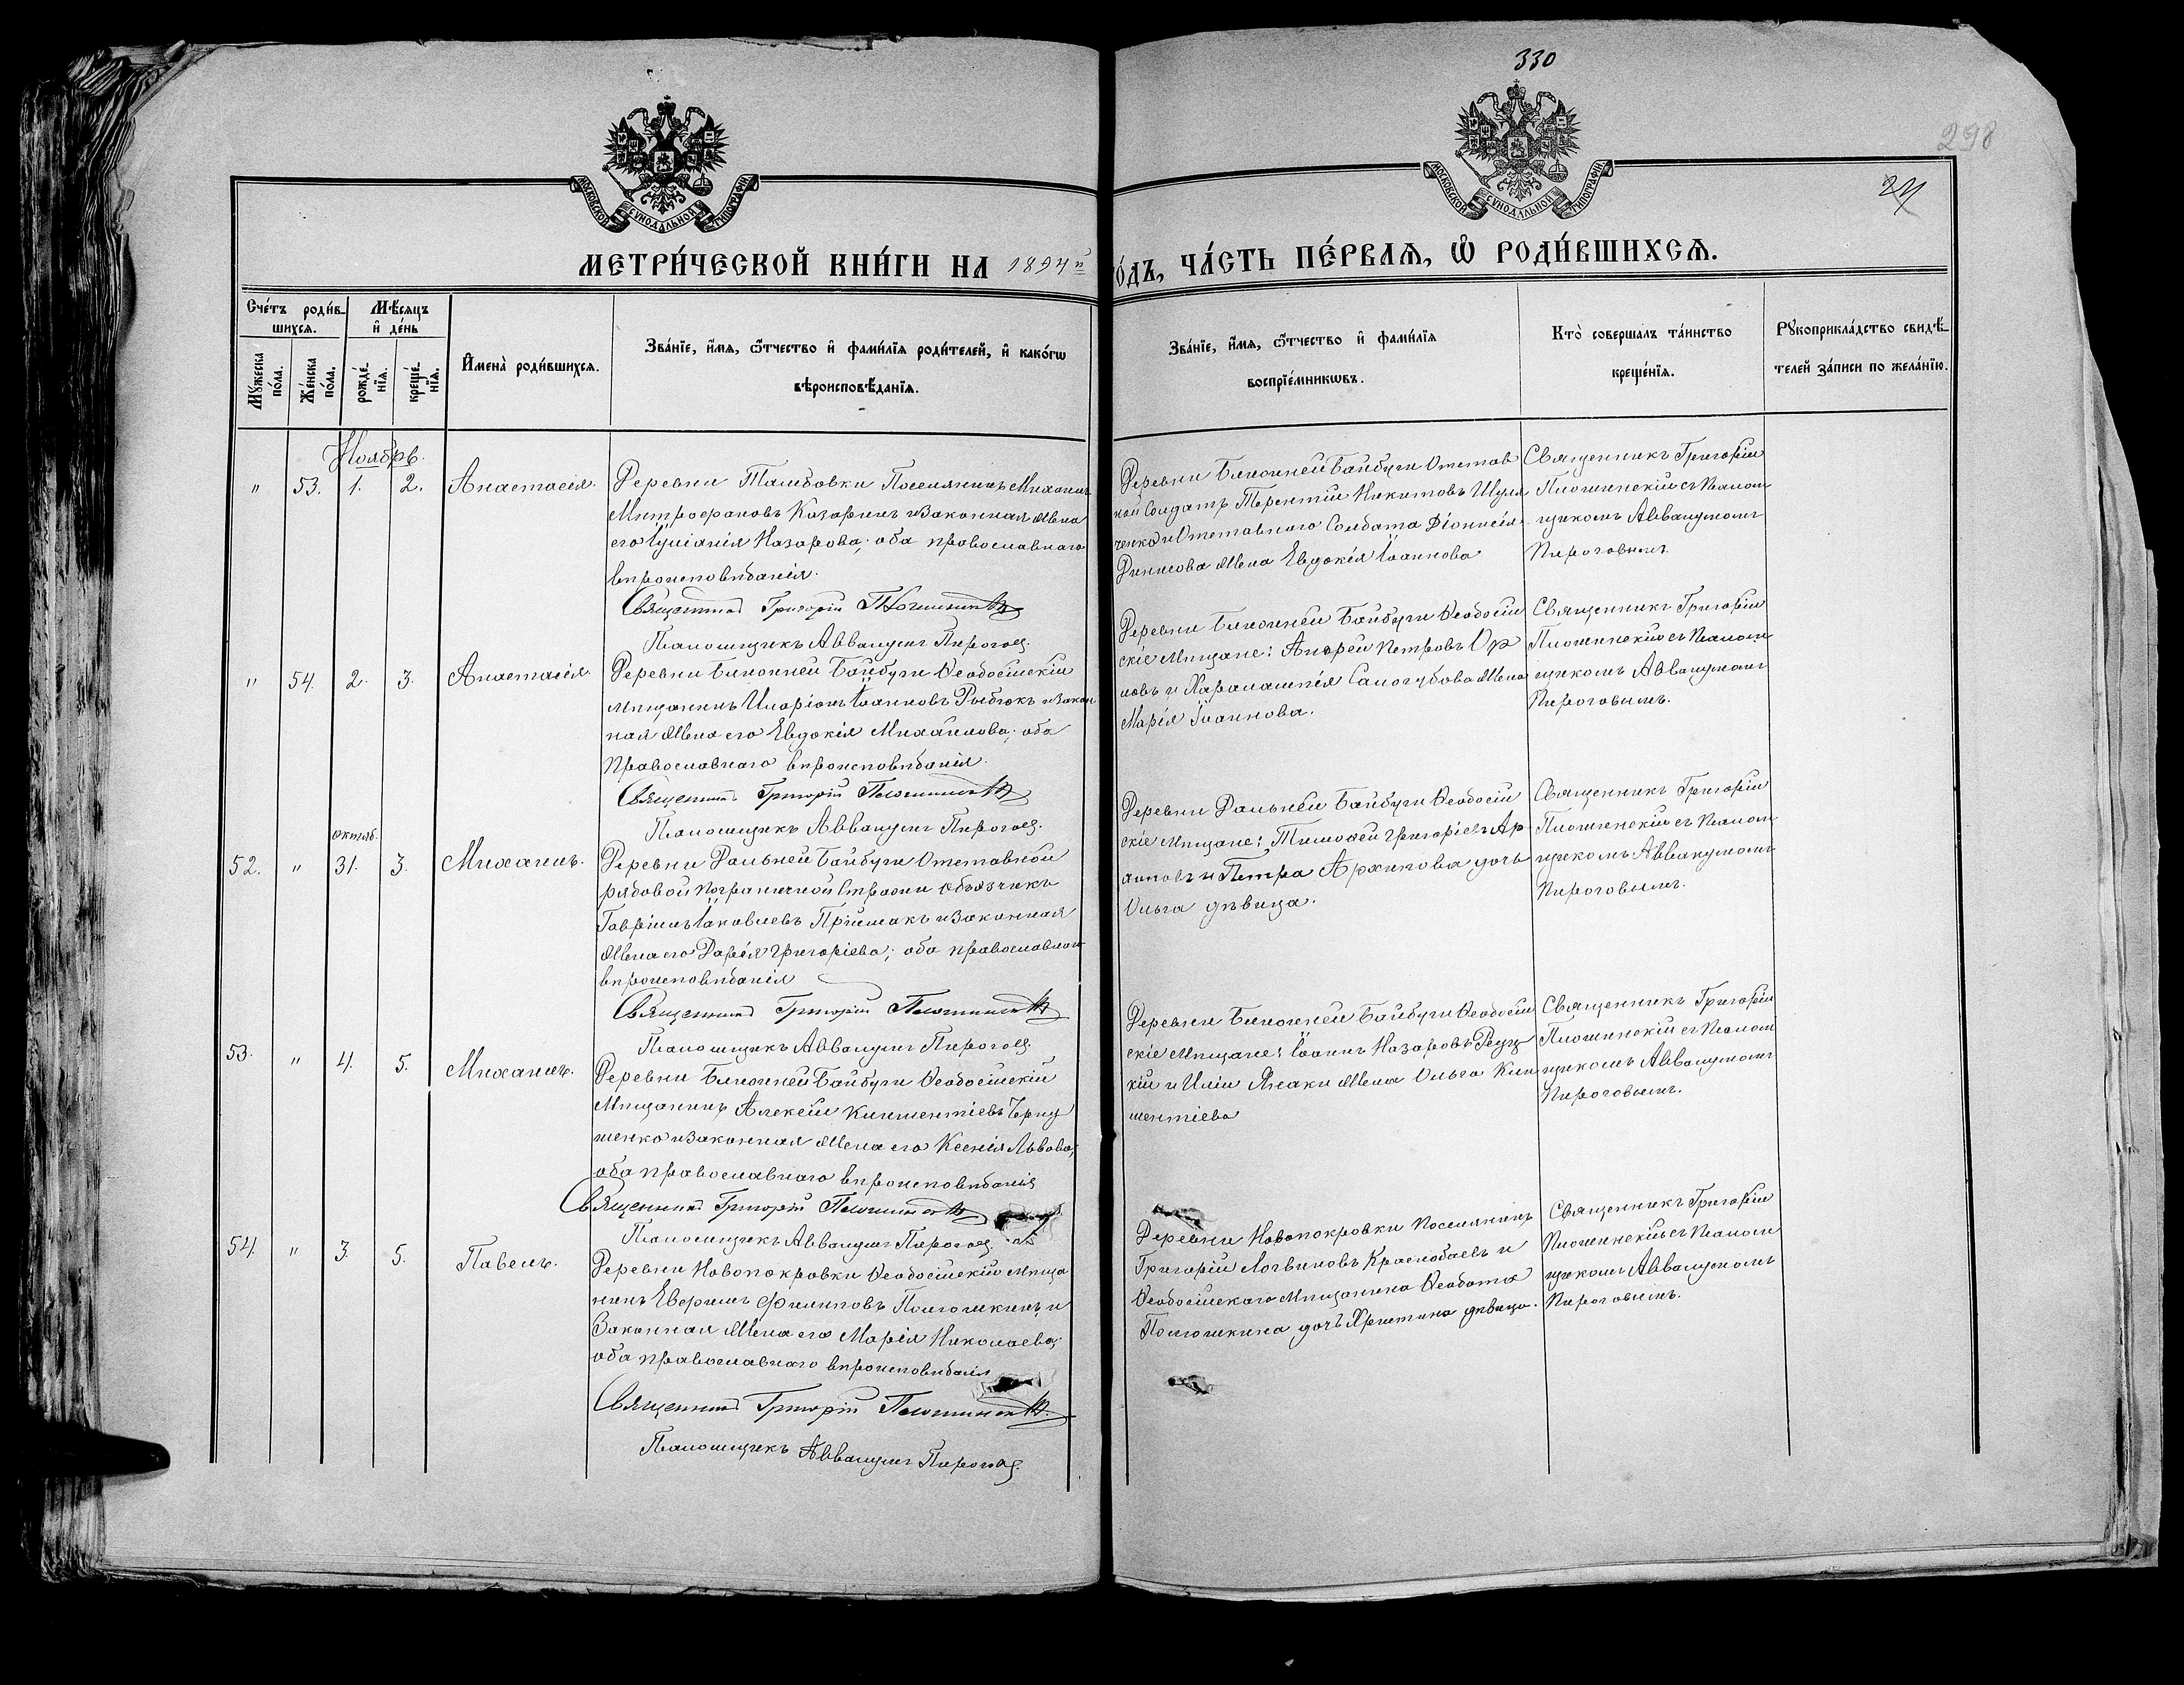 330
298
24
МОСКОВСКОЙ СѴНОДАЛЬНОЙ ТИПОГРАФІИ
МОСКОВСКОЙ СѴНОДАЛЬНОЙ ТИПОГРАФІИ
МЕТРИ́ЧЕСКОЙ КНИ́ГИ НА 1894й
О́ДЪ, ЧА́СТЬ ПЕ́РВАѦ, Ѡ҆ РОДИ́ВШИХСѦ.
Сче́тъ роди́в-
шихсѧ.
Мꙋ́жеска по́ла.
Же́нска по́ла.
Мѣ́сѧцъ
и҆ де́нь
рожде́-
нїѧ.
креще́-
нїѧ.
И҆мена̀ роди́вшихсѧ.
Зва́нїе, и҆́мѧ, ѻ҆́тчество и҆ фами́лїѧ роди́телей, и҆ како́гѡ
вѣроисповѣ́данїѧ.
Зва́нїе, и҆́мѧ, ѻ҆́тчество и҆ фами́лїѧ
воспрїе́мникѡвъ.
Кто̀ соверша́лъ та́инство
креще́нїѧ.
Рꙋкоприкла́дство свидѣ́-
телей за́писи по жела́нїю.
Ноябрь.
" 53. 1. 2. Анастасія.
Деревни Тамбовки Поселянинъ Михаилъ
Митрофановъ Казаринъ и Законная Жена
его Іуліанія Назарова; оба православнаго
вѣроисповѣданія.
Священникъ Григорій
Псаломщикъ Аввакумъ Пироговъ.
Деревни Ближней Байбуги Отстав
ной Солдатъ Терентій Никитовъ Шуля
ченко и Отставного Солдата Діонисія
Денисова Жена Евдокія Іоаннова
Священникъ Григорій
съ Псалом
щикомъ Аввакумомъ
Пироговымъ.
" 54. 2. 3. Анастасія.
Деревни Ближней Байбуги Ѳеодосійскій
Мѣщанинъ Иларіонъ Іоанновъ Рыбокъ и Закон
ная Жена его Евдокія Михайлова; оба
Православнаго вѣроисповѣданія.
Священникъ Григорій
Псаломщикъ Аввакумъ Пироговъ.
Деревни Ближней Байбуги Ѳеодосій
скіе Мѣщане: Андрей Петровъ Ор
ловъ и Харалампія Самогубова Жена
Марія Іоаннова.
Священникъ Григорій
съ Псалом
щикомъ Аввакумомъ
Пироговымъ.
октяб.
52. " 31. 3. Михаилъ.
Деревни Дальней Байбуги Отставной
рядовой Пограничной Стражи объѣзчикъ
Гавріилъ Іаковлевъ Пріймакъ и Законная
Жена его Дарія Григоріева; оба православнаго
вѣроисповѣданія
Священникъ Григорій
Псаломщикъ Аввакумъ Пироговъ.
Деревни Дальней Байбуги Ѳеодосій
скіе Мѣщане: Тимоѳей Григоріевъ Ар
хиповъ и Петра Архипова дочь
Ольга дѣвица.
Священникъ Григорій
съ Псалом
щикомъ Аввакумомъ
Пироговымъ.
53. " 4. 5. Михаилъ.
Деревни Ближней Байбуги Ѳеодосійскій
Мѣщанинъ Алексѣй Климентіевъ Черну
шенко и Законная Жена его Ксенія Львова;
оба православнаго вѣроисповѣданія
Священникъ Григорій
Псаломщикъ Аввакумъ Пироговъ.
Деревни Ближней Байбуги Ѳеодосій
скіе Мѣщане: Іоаннъ Назаровъ Руц
кій и Иліи Жена Ольга Кли
ментіева
Священникъ Григорій
съ Псалом
щикомъ Аввакумомъ
Пироговымъ.
54. " 3. 5. Павелъ.
Деревни Новопокровки Ѳеодосійскій Мѣща
нинъ Евфимъ Филиповъ Поломкинъ и
Законная Жена его Марія Николаева;
оба православнаго вѣроисповѣданія
Священникъ Григорій
Псаломщикъ Аввакумъ Пироговъ.
Деревни Новопокровки Поселянинъ
Григорій Логвиновъ Краснобаевъ и
Ѳеодосійскаго Мѣщанина Ѳеодота
Поломкина дочь Христина дѣвица.
Священникъ Григорій
съ Псалом
щикомъ Аввакумомъ
Пироговымъ.